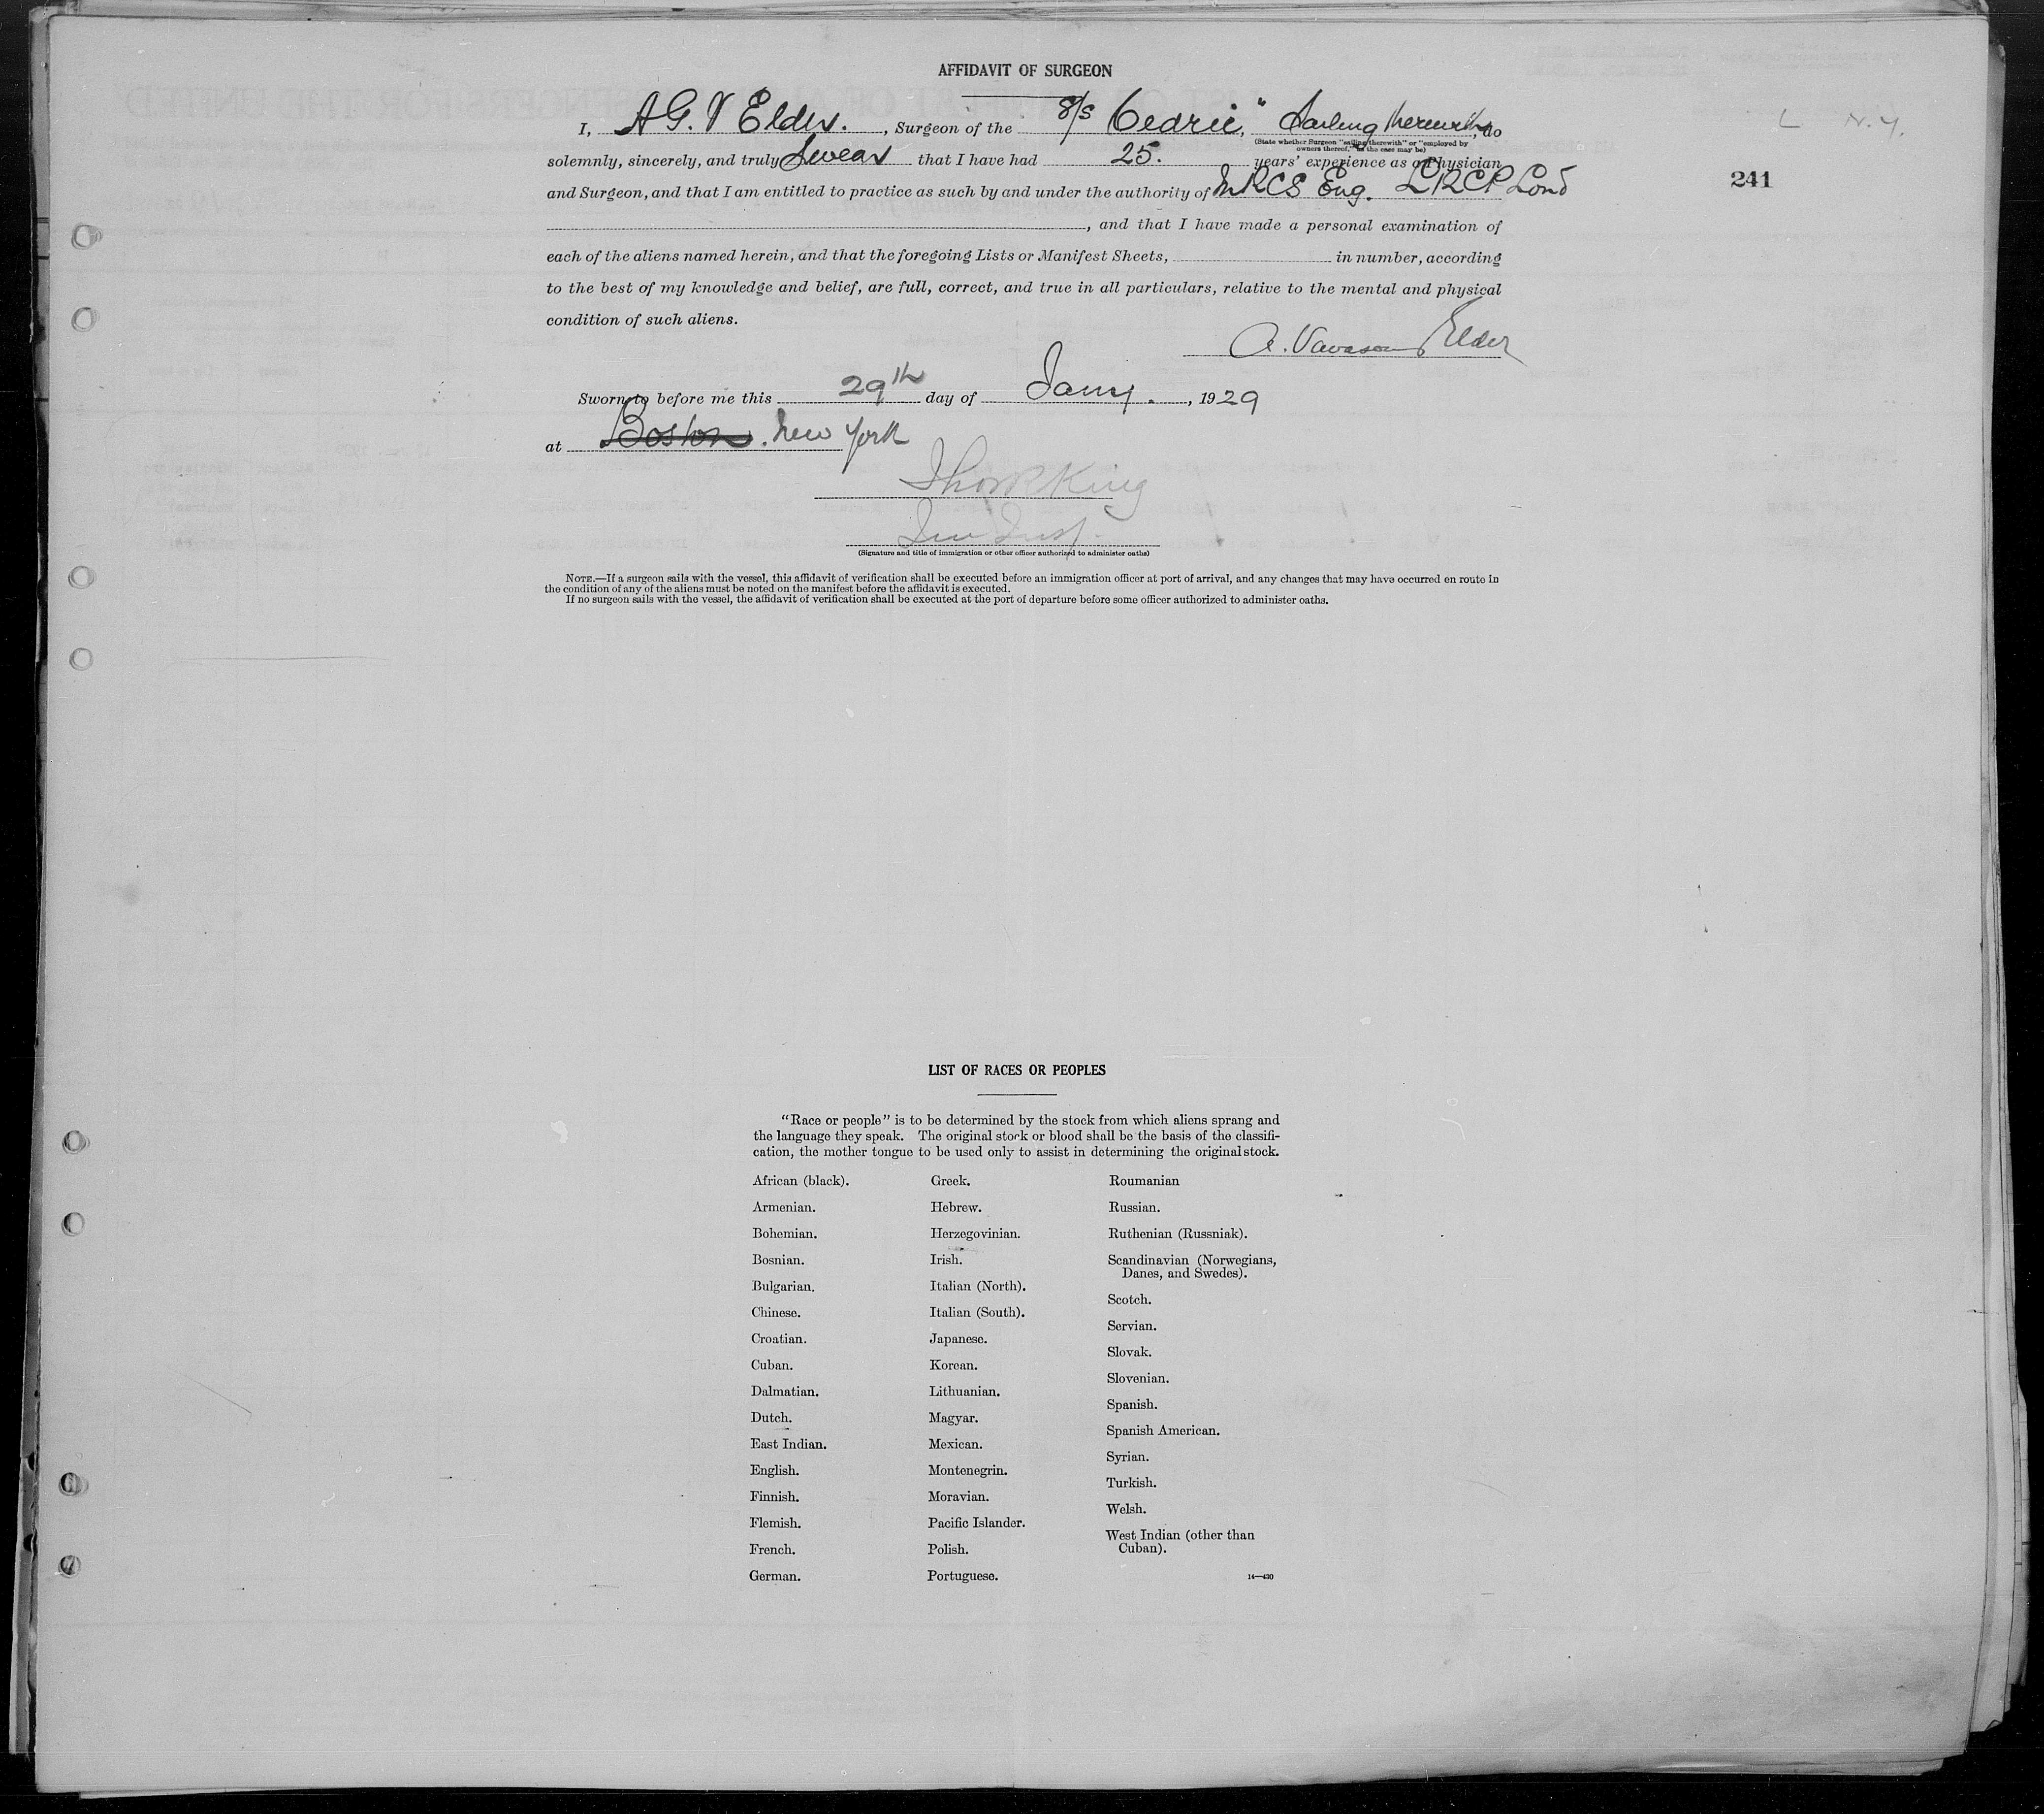 AFFIDAVIT OF SURGEON
I, A G. V Elder. , Surgeon of the S/S Cedric," Sailing therewith, do
(State whether Surgeon "sailing therewith" or "employed by
owners thereof," as the case may be)
solemnly, sincerely, and truly Swear that I have had 25. years' experience as a Physician
and Surgeon, and that I am entitled to practice as such by and under the authority of MRCS Eng. LRCP Lond
241
L N.Y.
, and that I have made a personal examination of
each of the aliens named herein, and that the foregoing Lists or Manifest Sheets, in number, according
to the best of my knowledge and belief, are full, correct, and true in all particulars, relative to the mental and physical
condition of such aliens.
A. Vavasour Elder
Sworn to before me this 29th day of Jany. , 1929
at Boston. New York
King
(Signature and title of immigration or other officer authorized to administer oaths)
NOTE.—If a surgeon sails with the vessel, this affidavit of verification shall be executed before an immigration officer at port of arrival, and any changes that may have occurred en route in
the condition of any of the aliens must be noted on the manifest before the affidavit is executed.
If no surgeon sails with the vessel, the affidavit of verification shall be executed at the port of departure before some officer authorized to administer oaths.
LIST OF RACES OR PEOPLES
"Race or people" is to be determined by the stock from which aliens sprang and
the language they speak. The original stock or blood shall be the basis of the classifi-
cation, the mother tongue to be used only to assist in determining the original stock.
African (black).
Armenian.
Bohemian.
Bosnian.
Bulgarian.
Chinese.
Croatian.
Cuban.
Dalmatian.
Dutch.
East Indian.
English.
Finnish.
Flemish.
French.
German.
Greek.
Hebrew.
Herzegovinian.
Irish.
Italian (North).
Italian (South).
Japanese.
Korean.
Lithuanian.
Magyar.
Mexican.
Montenegrin.
Moravian.
Pacific Islander.
Polish.
Portuguese.
Roumanian
Russian.
Ruthenian (Russniak).
Scandinavian (Norwegians,
Danes, and Swedes).
Scotch.
Servian.
Slovak.
Slovenian.
Spanish.
Spanish American.
Syrian.
Turkish.
Welsh.
West Indian (other than
Cuban).
14—430